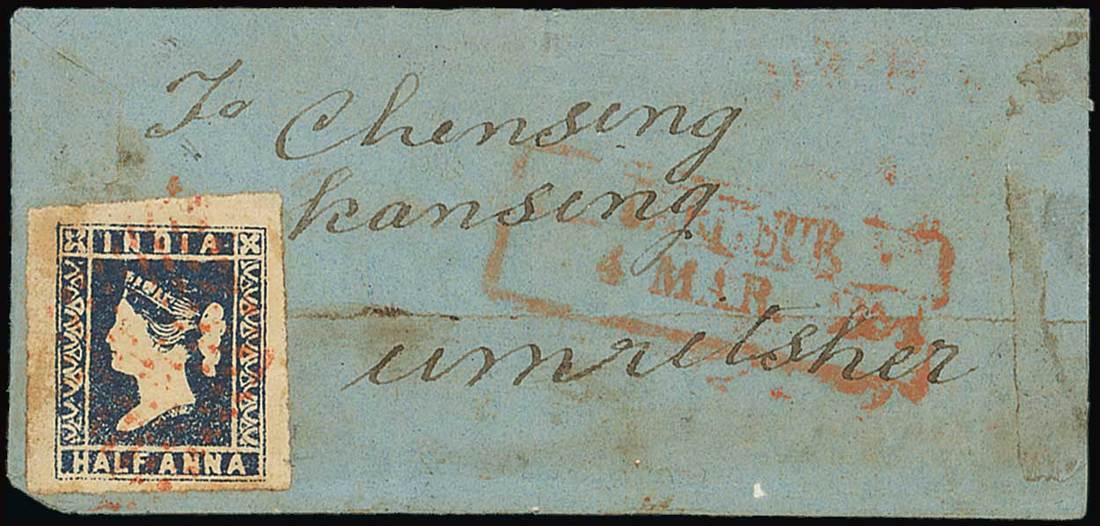 To Chensing
kansing
4 MAR
umritsher
INDIA
HALF ANNA